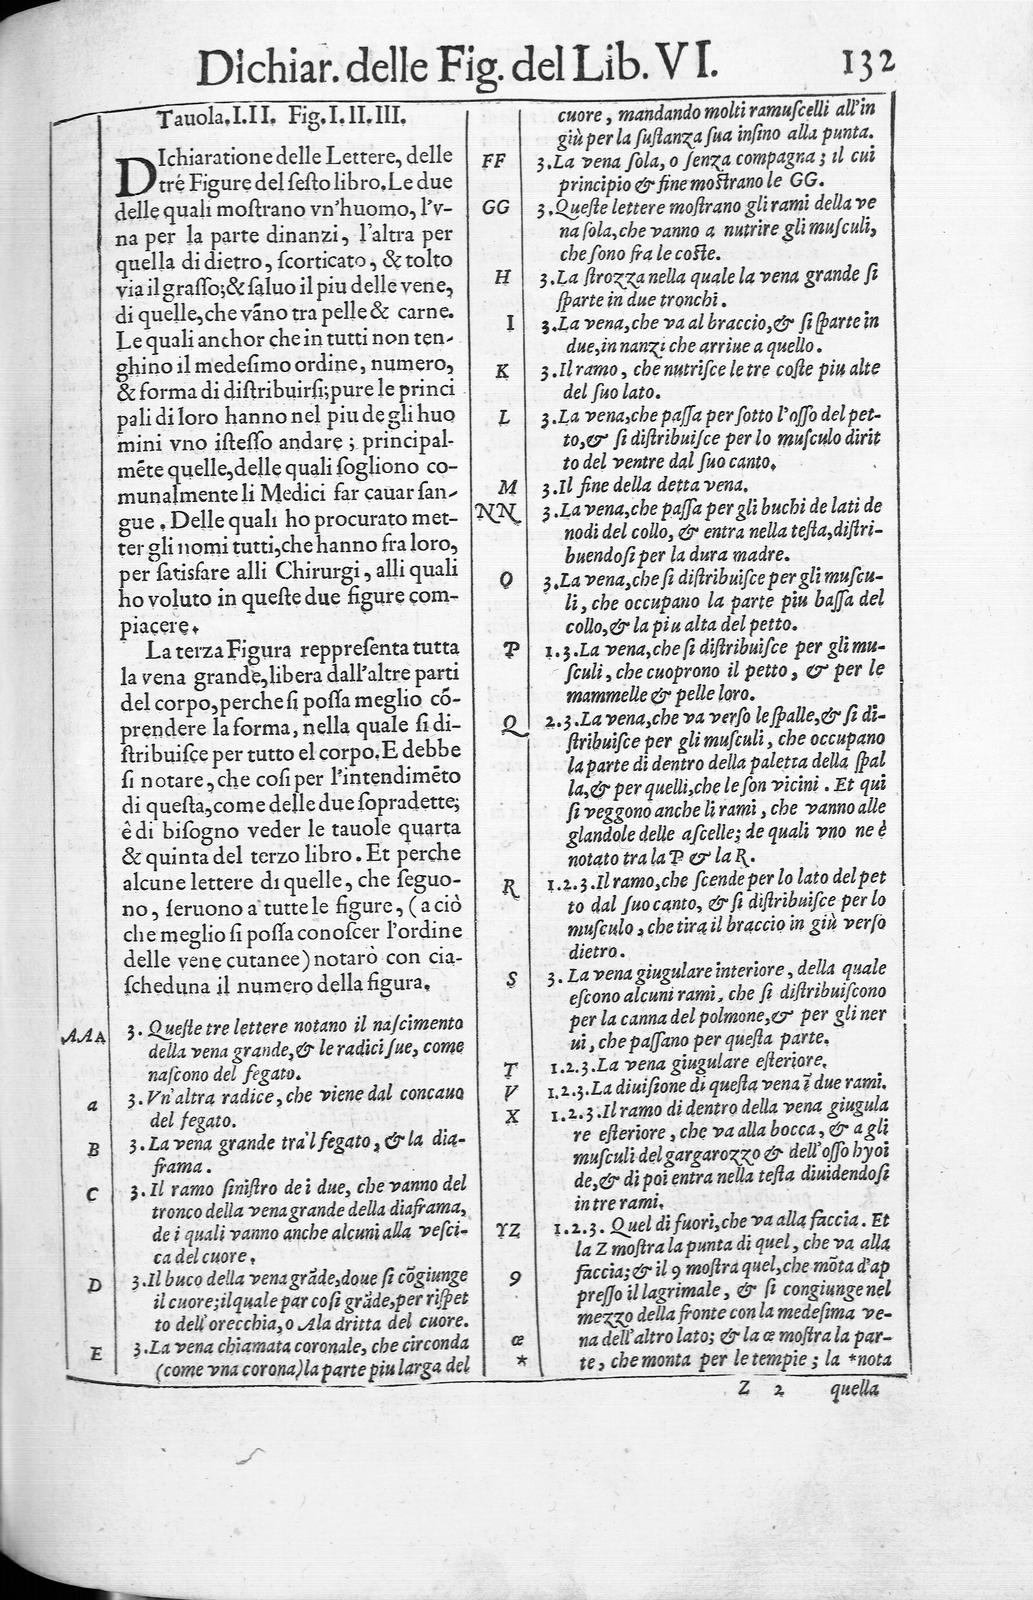 Dichiar. delle Fig. del Lib. VI. 132
Tauola. I. II. Fig. I. II. III.
DIchiaratione delle Lettere, delle
tré Figure del ſeſto libro. Le due
delle quali moſtrano vn'huomo, l'v-
na per la parte dinanzi, l'altra per
quella di dietro, ſcorticato, & tolto
via il graſſo; & ſaluo il piu delle vene,
di quelle, che vãno tra pelle & carne.
Le quali anchor che in tutti non ten-
ghino il medeſimo ordine, numero,
& forma di diſtribuirſi; pure le princi
pali di loro hanno nel piu de gli huo
mini vno iſteſſo andare; principal-
mẽte quelle, delle quali ſogliono co-
munalmente li Medici far cauar ſan-
gue. Delle quali ho procurato met-
ter gli nomi tutti, che hanno fra loro,
per ſatisfare alli Chirurgi, alli quali
ho voluto in queſte due figure com-
piacere.
La terza Figura reppreſenta tutta
la vena grande, libera dall'altre parti
del corpo, perche ſi poſſa meglio cõ-
prendere la forma, nella quale ſi di-
ſtribuiſce per tutto el corpo. E debbe
ſi notare, che coſi per l'intendimẽto
di queſta, come delle due ſopradette;
ê di biſogno veder le tauole quarta
& quinta del terzo libro. Et perche
alcune lettere di quelle, che ſeguo-
no, ſeruono a tutte le figure, (a ciò
che meglio ſi poſſa conoſcer l'ordine
delle vene cutanee) notarò con cia-
ſcheduna il numero della figura.
AAA 3. Queſte tre lettere notano il naſcimento
della vena grande, & le radici ſue, come
naſcono del fegato.
a 3. Vn'altra radice, che viene dal concauo
del fegato.
B 3. La vena grande tra'l fegato, & la dia-
frama.
C 3. Il ramo ſiniſtro de i due, che vanno del
tronco della vena grande della diaframa,
de i quali vanno anche alcuni alla veſci-
ca del cuore.
D 3. Il buco della vena grãde, doue ſi cõgiunge
il cuore; il quale par coſi grãde, per riſpet
to dell'orecchia, o Ala dritta del cuore.
E 3. La vena chiamata coronale, che circonda
(come vna corona) la parte piu larga del
cuore, mandando molti ramuſcelli all'in
giù per la ſuſtanza ſua inſino alla punta.
FF 3. La vena ſola, o ſenza compagna; il cui
principio & fine moſtrano le GG.
GG 3. Queſte lettere moſtrano gli rami della ve
na ſola, che vanno a nutrire gli muſculi,
che ſono fra le coſte.
H 3. La ſtrozza nella quale la vena grande ſi
ſparte in due tronchi.
I 3. La vena, che va al braccio, & ſi ſparte in
due, in nanzi che arriue a quello.
K 3. Il ramo, che nutriſce le tre coſte piu alte
del ſuo lato.
L 3. La vena, che paſſa per ſotto l'oſſo del pet-
to, & ſi diſtribuiſce per lo muſculo dirit
to del ventre dal ſuo canto.
M 3. Il fine della detta vena.
NN 3. La vena, che paſſa per gli buchi de lati de
nodi del collo, & entra nella teſta, diſtri-
buendoſi per la dura madre.
O 3. La vena, che ſi diſtribuiſce per gli muſcu-
li, che occupano la parte piu baſſa del
collo, & la piu alta del petto.
P 1. 3. La vena, che ſi diſtribuiſce per gli mu-
ſculi, che cuoprono il petto, & per le
mammelle & pelle loro.
Q 2. 3. La vena, che va verſo le ſpalle, & ſi di-
ſtribuiſce per gli muſculi, che occupano
la parte di dentro della paletta della ſpal
la, & per quelli, che le ſon vicini. Et qui
ſi veggono anche li rami, che vanno alle
glandole delle aſcelle; de quali vno ne è
notato tra la P & la R.
R 1. 2. 3. Il ramo, che ſcende per lo lato del pet
to dal ſuo canto, & ſi diſtribuiſce per lo
muſculo, che tira il braccio in giù verſo
dietro.
S 3. La vena giugulare interiore, della quale
eſcono alcuni rami, che ſi diſtribuiſcono
per la canna del polmone, & per gli ner
ui, che paſſano per queſta parte.
T 1. 2. 3. La vena giugulare eſteriore.
V 1. 2. 3. La diuiſione di queſta vena ĩ due rami.
X 1. 2. 3. Il ramo di dentro della vena giugula
re eſteriore, che va alla bocca, & a gli
muſculi del gargarozzo & dell'oſſo hyoi
de, & di poi entra nella teſta diuidendoſi
in tre rami.
YZ 1. 2. 3. Quel di fuori, che va alla faccia. Et
la Z moſtra la punta di quel, che va alla
9 faccia; & il 9 moſtra quel, che mõta d'ap
preſſo il lagrimale, & ſi congiunge nel
mezzo della fronte con la medeſima ve-
œ na dell'altro lato; & la œ moſtra la par-
* te, che monta per le tempie; la * nota
Z 2 quella